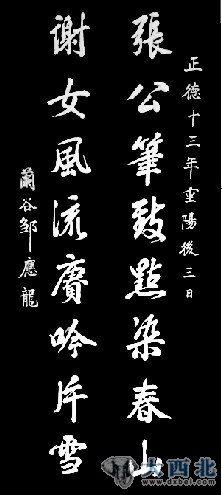 正德十三年重陽後三日
張公筆致點染春山
謝女風流賡吟片雪
蘭谷鄒應龍
大西北